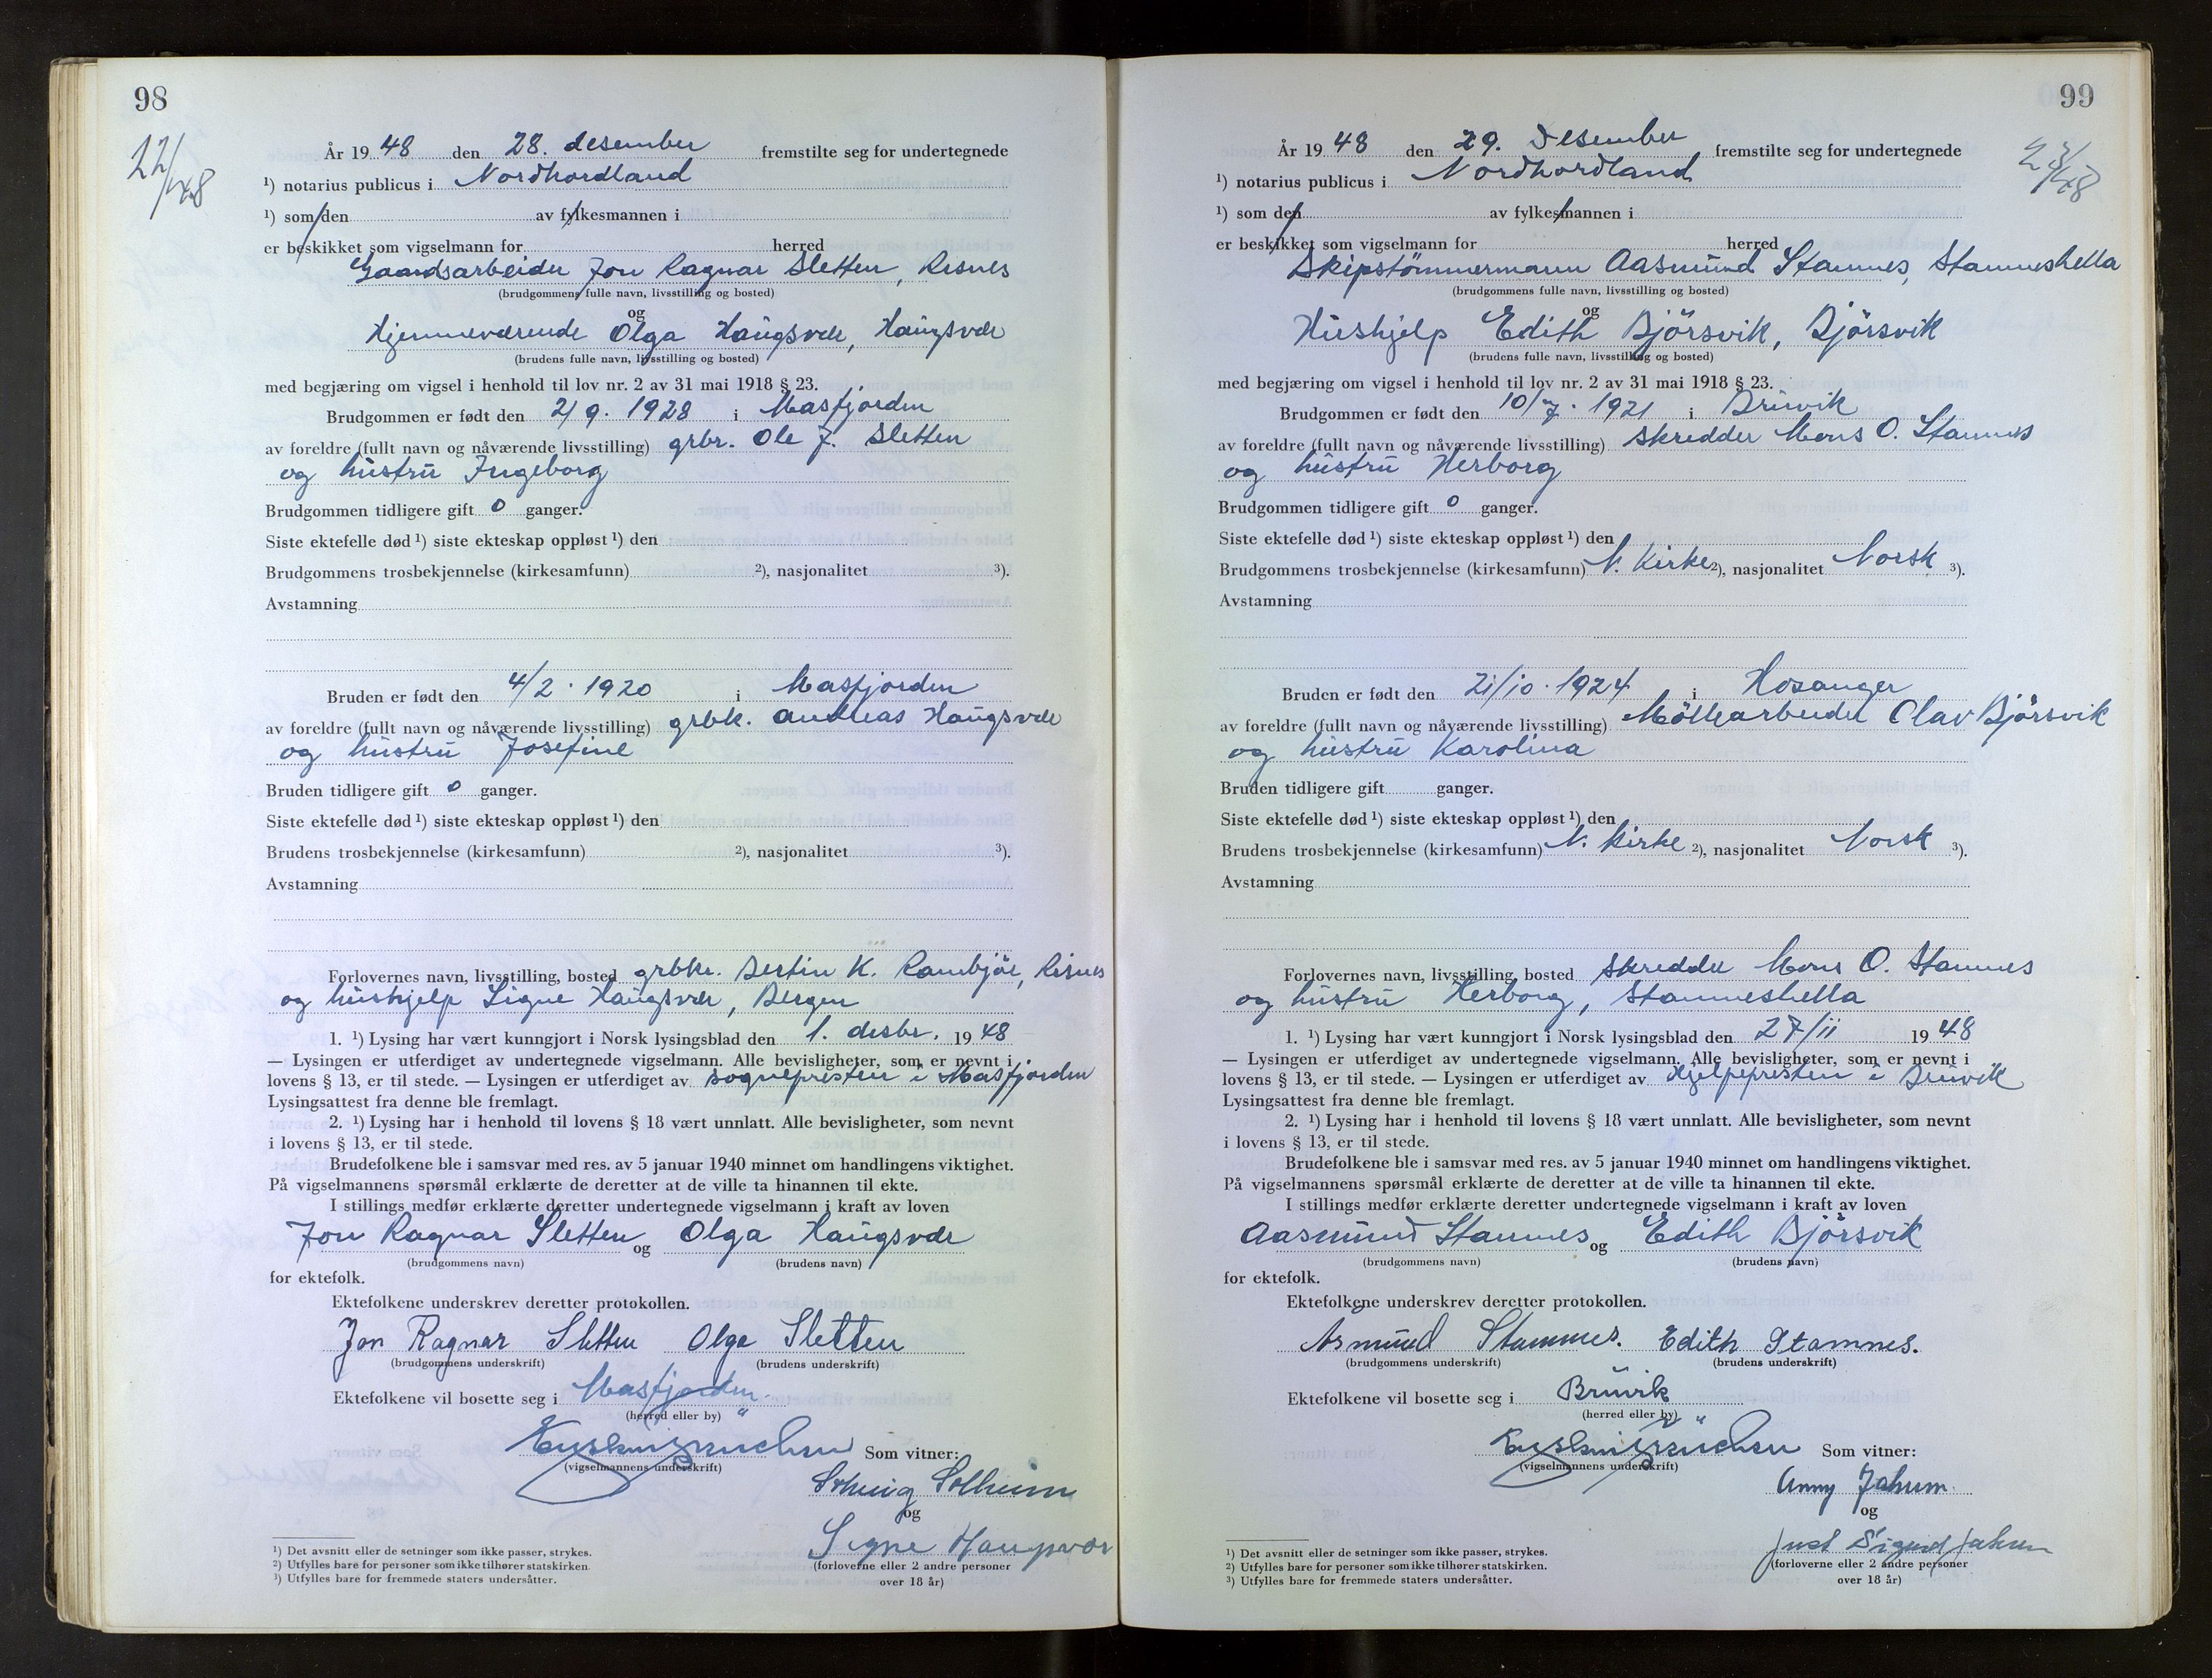 98
22/48
År 19 48 den 28. desember fremstilte seg for undertegnede
¹) notarius publicus i Nordhordland
¹) som den av fylkesmannen i
er beskikket som vigselmann for herred
Gaardsarbeider Jon Ragnar Sletten, Risnes
(brudgommens fulle navn, livsstilling og bosted)
og
Hjemmeværende Olga Haugsvær, Haugsvær
(brudens fulle navn, livsstilling og bosted)
med begjæring om vigsel i henhold til lov nr. 2 av 31 mai 1918 § 23.
Brudgommen er født den 2/9. 1928 i Masfjorden
av foreldre (fullt navn og nåværende livsstilling) grbr. Ole J. Sletten
og hustru Ingeborg
Brudgommen tidligere gift 0 ganger.
Siste ektefelle død ¹) siste ekteskap oppløst ¹) den
Brudgommens trosbekjennelse (kirkesamfunn) ²), nasjonalitet ³).
Avstamning
Bruden er født den 4/2. 1920 i Masfjorden
av foreldre (fullt navn og nåværende livsstilling) grbk. Andreas Haugsvær
og hustru Josefine
Bruden tidligere gift 0 ganger.
Siste ektefelle død ¹) siste ekteskap oppløst ¹) den
Brudens trosbekjennelse (kirkesamfunn) ²), nasjonalitet ³).
Avstamning
Forlovernes navn, livsstilling, bosted grbkr. Bertin K. Rambjør, Risnes
og hushjelp Signe Haugsvær, Bergen
1. ¹) Lysing har vært kunngjort i Norsk lysingsblad den 1. desbr. 19 48
— Lysingen er utferdiget av undertegnede vigselmann. Alle bevisligheter, som er nevnt i
lovens § 13, er til stede. — Lysingen er utferdiget av sognepresten i Masfjorden
Lysingsattest fra denne ble fremlagt.
2. ¹) Lysing har i henhold til lovens § 18 vært unnlatt. Alle bevisligheter, som nevnt
i lovens § 13, er til stede.
Brudefolkene ble i samsvar med res. av 5 januar 1940 minnet om handlingens viktighet.
På vigselmannens spørsmål erklærte de deretter at de ville ta hinannen til ekte.
I stillings medfør erklærte deretter undertegnede vigselmann i kraft av loven
Jon Ragnar Sletten og Olga Haugsvær
(brudgommens navn) (brudens navn)
for ektefolk.
Ektefolkene underskrev deretter protokollen.
Jon Ragnar Sletten Olga Sletten
(brudgommens underskrift) (brudens underskrift)
Ektefolkene vil bosette seg i Masfjorden
(herred eller by)
Som vitner:
(vigselmannens underskrift)
Solveig Solheim
og
Signe Haugsvær
(forloverne eller 2 andre personer
over 18 år)
¹) Det avsnitt eller de setninger som ikke passer, strykes.
²) Utfylles bare for personer som ikke tilhører statskirken.
³) Utfylles bare for fremmede staters undersåtter.
99
23/48
År 19 48 den 29. Desember fremstilte seg for undertegnede
¹) notarius publicus i Nordhordland
¹) som den av fylkesmannen i
er beskikket som vigselmann for herred
Skipstömmermann Aasmund Stamnes, Stamneshella
(brudgommens fulle navn, livsstilling og bosted)
og
Hushjelp Edith Björsvik, Björsvik
(brudens fulle navn, livsstilling og bosted)
med begjæring om vigsel i henhold til lov nr. 2 av 31 mai 1918 § 23.
Brudgommen er født den 10/7. 1921 i Bruvik
av foreldre (fullt navn og nåværende livsstilling) skredder Mons O. Stamnes
og hustru Herborg
Brudgommen tidligere gift 0 ganger.
Siste ektefelle død ¹) siste ekteskap oppløst ¹) den
Brudgommens trosbekjennelse (kirkesamfunn) N. Kirke ²), nasjonalitet Norsk ³).
Avstamning
Bruden er født den 21/10. 1924 i Hosanger
av foreldre (fullt navn og nåværende livsstilling) Möllearbeider Olav Björsvik
og hustru Karolina
Bruden tidligere gift ganger.
Siste ektefelle død ¹) siste ekteskap oppløst ¹) den
Brudens trosbekjennelse (kirkesamfunn) N. Kirke ²), nasjonalitet Norsk ³).
Avstamning
Forlovernes navn, livsstilling, bosted skredder Mons O. Stamnes
og hustru Herborg, Stamneshella
1. ¹) Lysing har vært kunngjort i Norsk lysingsblad den 27/11 19 48
— Lysingen er utferdiget av undertegnede vigselmann. Alle bevisligheter, som er nevnt i
lovens § 13, er til stede. — Lysingen er utferdiget av Hjelpepresten i Bruvik
Lysingsattest fra denne ble fremlagt.
2. ¹) Lysing har i henhold til lovens § 18 vært unnlatt. Alle bevisligheter, som nevnt
i lovens § 13, er til stede.
Brudefolkene ble i samsvar med res. av 5 januar 1940 minnet om handlingens viktighet.
På vigselmannens spørsmål erklærte de deretter at de ville ta hinannen til ekte.
I stillings medfør erklærte deretter undertegnede vigselmann i kraft av loven
Aasmund Stamnes og Edith Björsvik
(brudgommens navn) (brudens navn)
for ektefolk.
Ektefolkene underskrev deretter protokollen.
Asmund Stamnes. Edith Stamnes.
(brudgommens underskrift) (brudens underskrift)
Ektefolkene vil bosette seg i Bruvik
(herred eller by)
Som vitner:
(vigselmannens underskrift)
Anny Jahren
og
Just Sigurd Jahren
(forloverne eller 2 andre personer
over 18 år)
¹) Det avsnitt eller de setninger som ikke passer, strykes.
²) Utfylles bare for personer som ikke tilhører statskirken.
³) Utfylles bare for fremmede staters undersåtter.